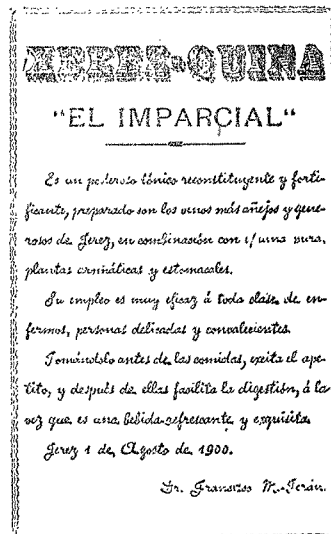 XEREZ-QUINA
"EL IMPARCIAL"
Es un poderoso tónico reconstituyente y forti-
ficante, preparado con los vinos más añejos y gene-
rosos de Jerez, en combinación con quina pura,
plantas aromáticas y estomacales.
Su empleo es muy eficaz á toda clase de en-
fermos, personas delicadas y convalecientes.
Tomándolo antes de las comidas, excita el ape-
tito, y después de ellas facilita la digestión, á la
vez que es una bebida refrescante y exquisita.
Jerez 1 de Agosto de 1900.
Dr. Francisco M. Terán.